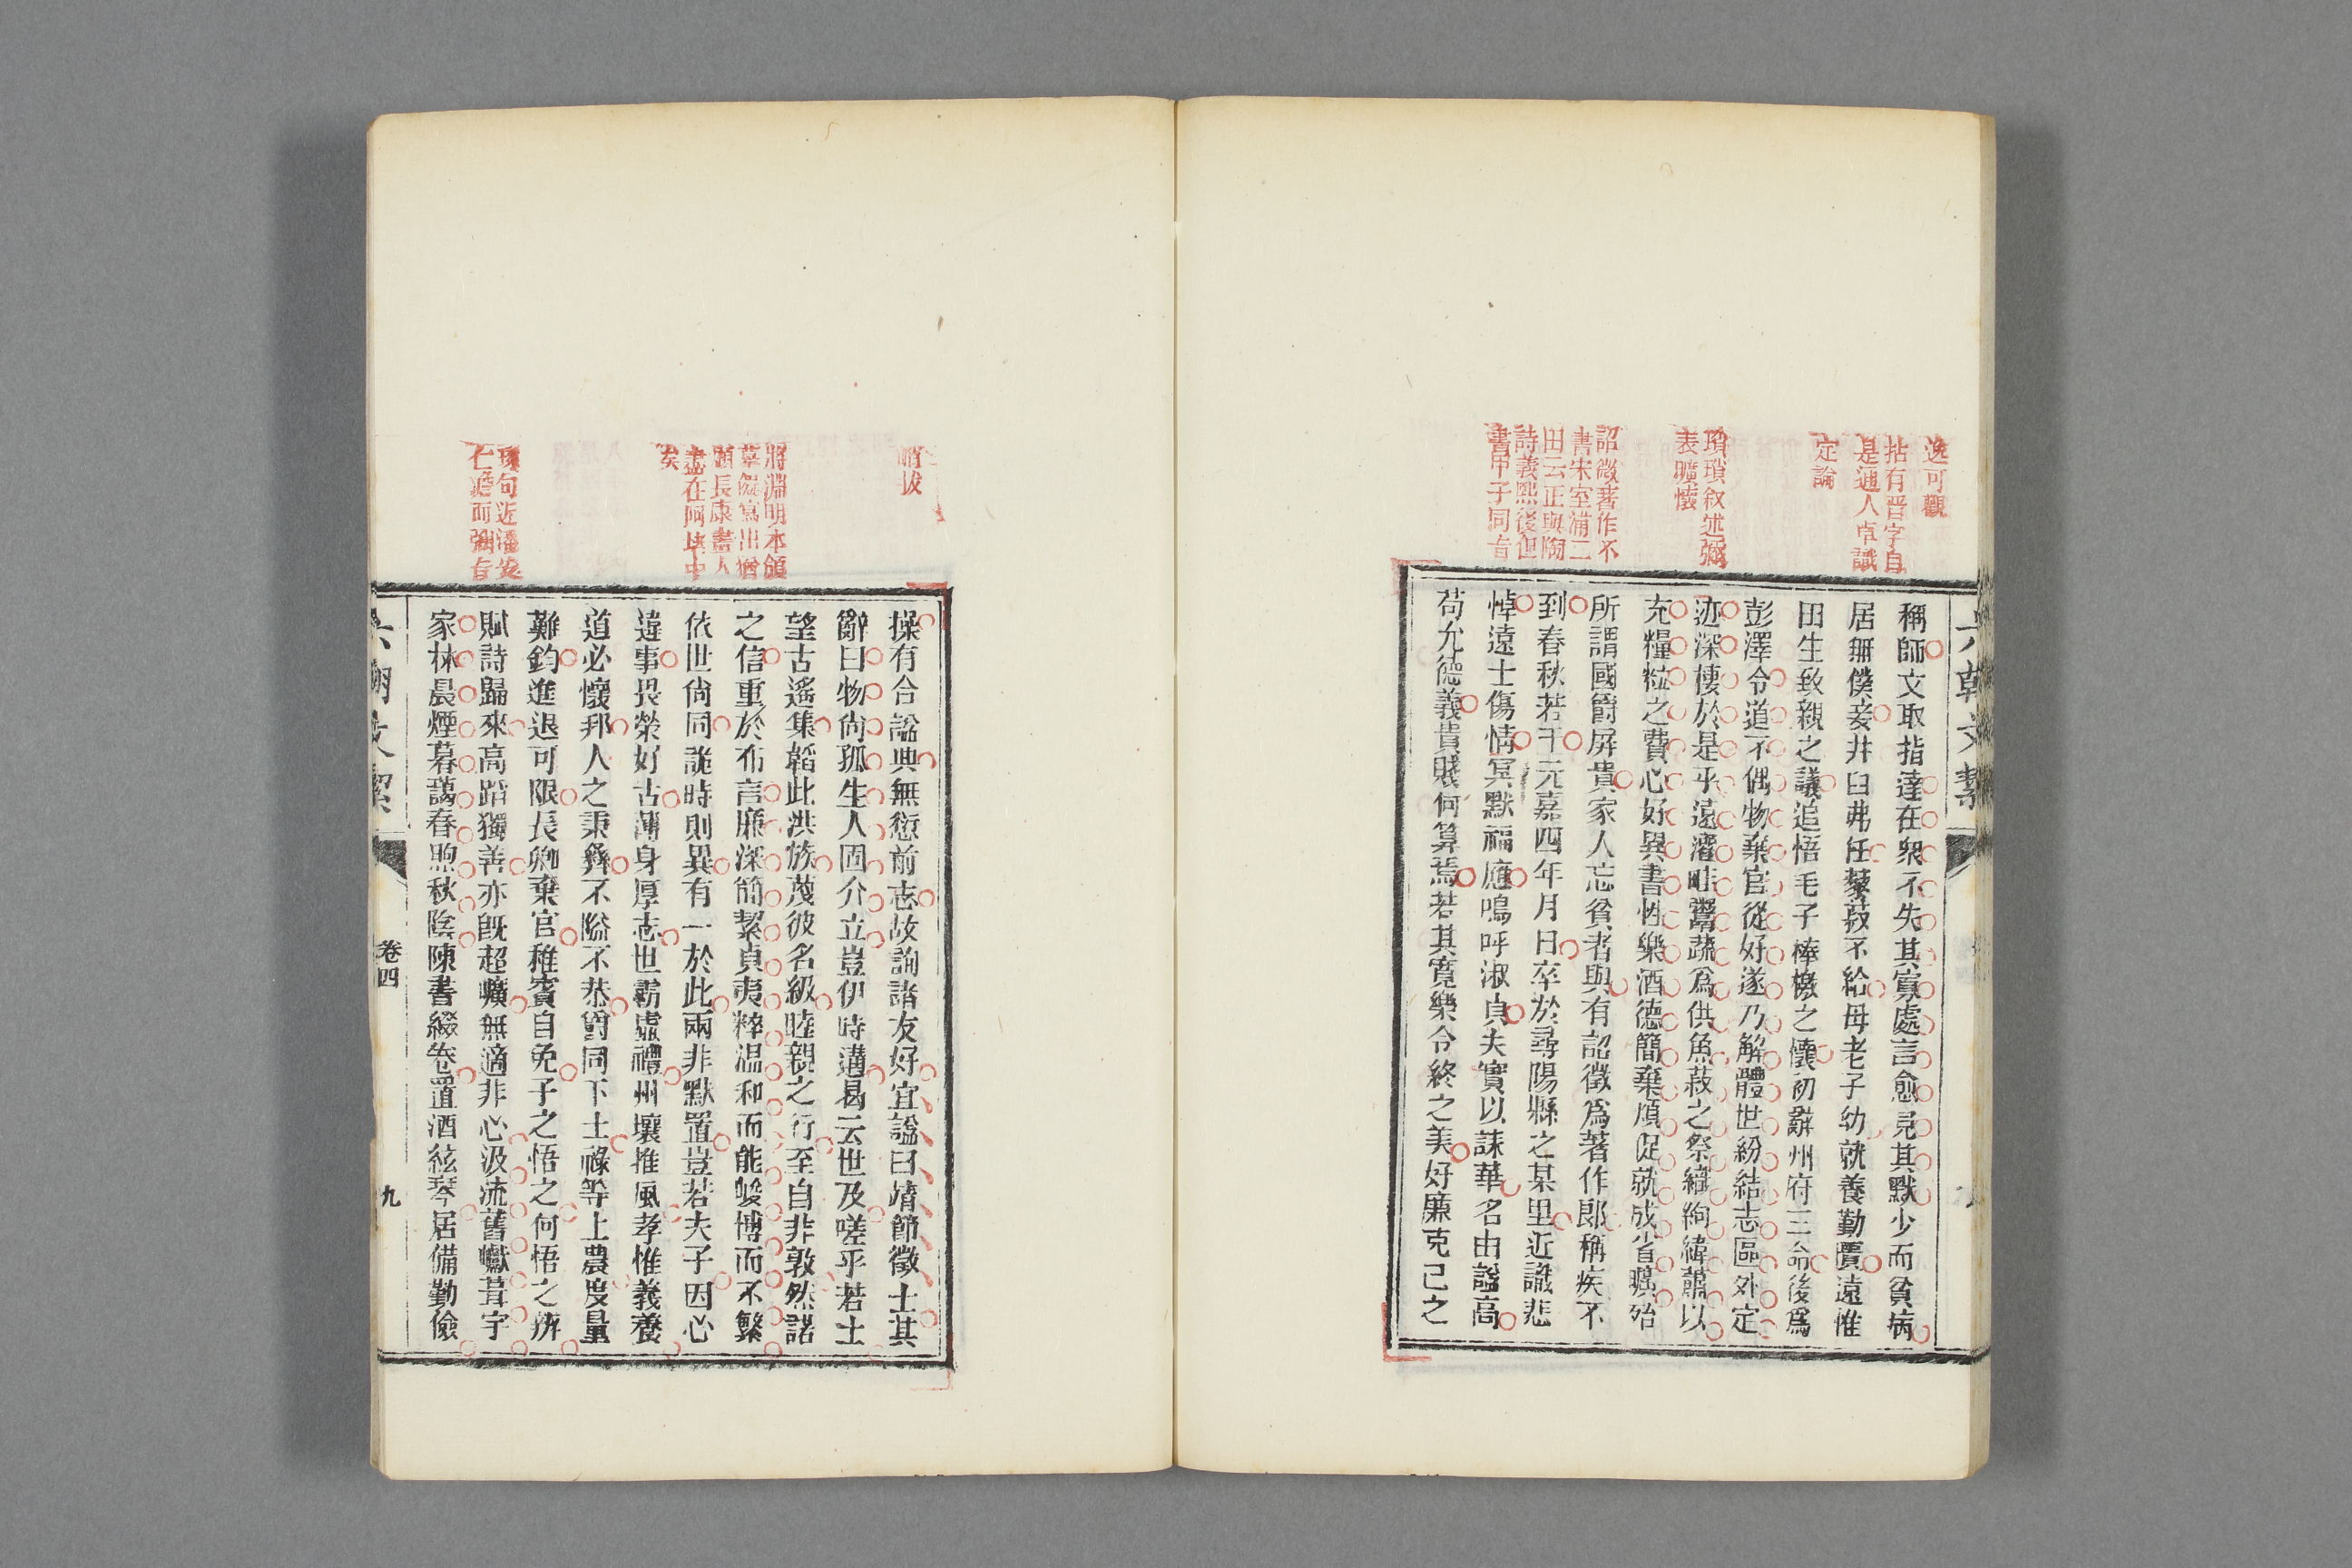 逸可觀
拈有晉字自
是通人卓識
定論
瑣瑣叙述彌
表曠懷
詔徵著作不
書宋室浦二
田云正與陶
詩義熙後但
書甲子同旨
稱師文取指達在衆不失其寡處言愈見其默少而貧病
居無僕妾井臼弗任藜菽不給母老子幼就養勤匱遠惟
田生致親之議追悟毛子捧檄之懷初辭州府三命後爲
彭澤令道不偶物棄官從好遂乃解體世紛結志區外定
迹深棲於是乎遠灌畦鬻蔬爲供魚菽之祭織絇緯蕭以
充糧粒之費心好異書性樂酒德簡棄煩促就成省曠殆
所謂國爵屏貴家人忘貧者與有詔徵爲著作郎稱疾不
到春秋若干元嘉四年月日卒於尋陽縣之某里近識悲
悼遠士傷情冥默福應嗚呼淑貞夫實以誄華名由諡高
苟允德義貴賤何算焉若其寬樂令終之美好廉克己之
峭拔
將淵明本領
摹儗寫出猶
顧長康畫人
盡在阿堵中
矣
瑣句近潘安
仁澹而彌旨
操有合諡典無愆前志故詢諸友好宜諡曰靖節徵士其
辭曰物尚孤生人固介立豈伊時遘曷云世及嗟乎若士
望古遙集韜此洪族蔑彼名級睦親之行至自非敦然諾
之信重於布言廉深簡絜貞夷粹温和而能峻博而不繁
依世尚同詭時則異有一於此兩非默置豈若夫子因心
違事畏榮好古薄身厚志世霸虛禮州壤推風孝惟義養
道必懷邦人之秉彝不隘不恭爵同下士祿等上農度量
難鈞進退可限長卿棄官稚賓自免子之悟之何悟之辨
賦詩歸來高蹈獨善亦旣超曠無適非心汲流舊巘葺宇
家林晨煙暮藹春煦秋陰陳書綴卷置酒絃琴居備勤儉
卷四
九